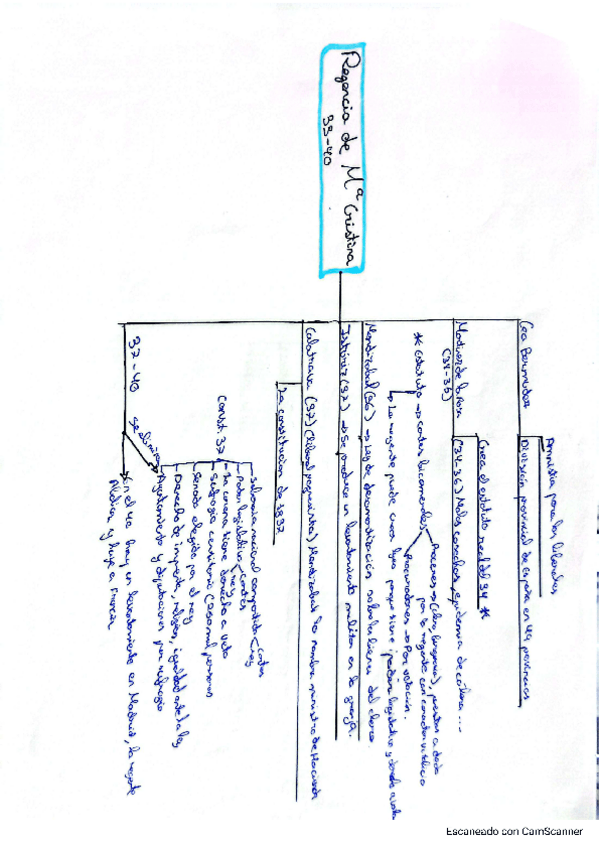 Regencia de Mª Cristina
33-40
Cea Bermúdez
Amnistía para los liberales
División provincial de España en 49 provincias
Martínez de la Rosa
(34-35)
Crea el estatuto real del 34 *
(34-36) Malas cosechas, epidemia de cólera...
* Estatuto → cortes bicamerales
Próceres → (clero, burgueses), puestos a dedo
por la regente con caracter vitalicio
Procuradores → Por votación.
→ La regente puede crear leyes porque tiene poder legislativo y
Mendizabal (36) → Ley de desamortización sobre los bienes del clero.
Istúriz (37) → Se produce un levantamiento militar en la granja.
Calatrava (37) (liberal progresista) Mendizabal lo nombra ministro de Hacienda
La constitución de 1837
Const. 37
Soberanía nacional compartida
cortes
rey
Poder legislativo
cortes
rey
La corona tiene derecho a veto
Sufragio censitario
Senado elegido por el rey
Derecho de imprenta, religión, igualdad ante la ley
Ayuntamiento y diputaciones por sufragio
37-40
se
En el 40 hay un levantamiento en Madrid, la regente
abdica y huye a Francia
Escaneado con CamScanner